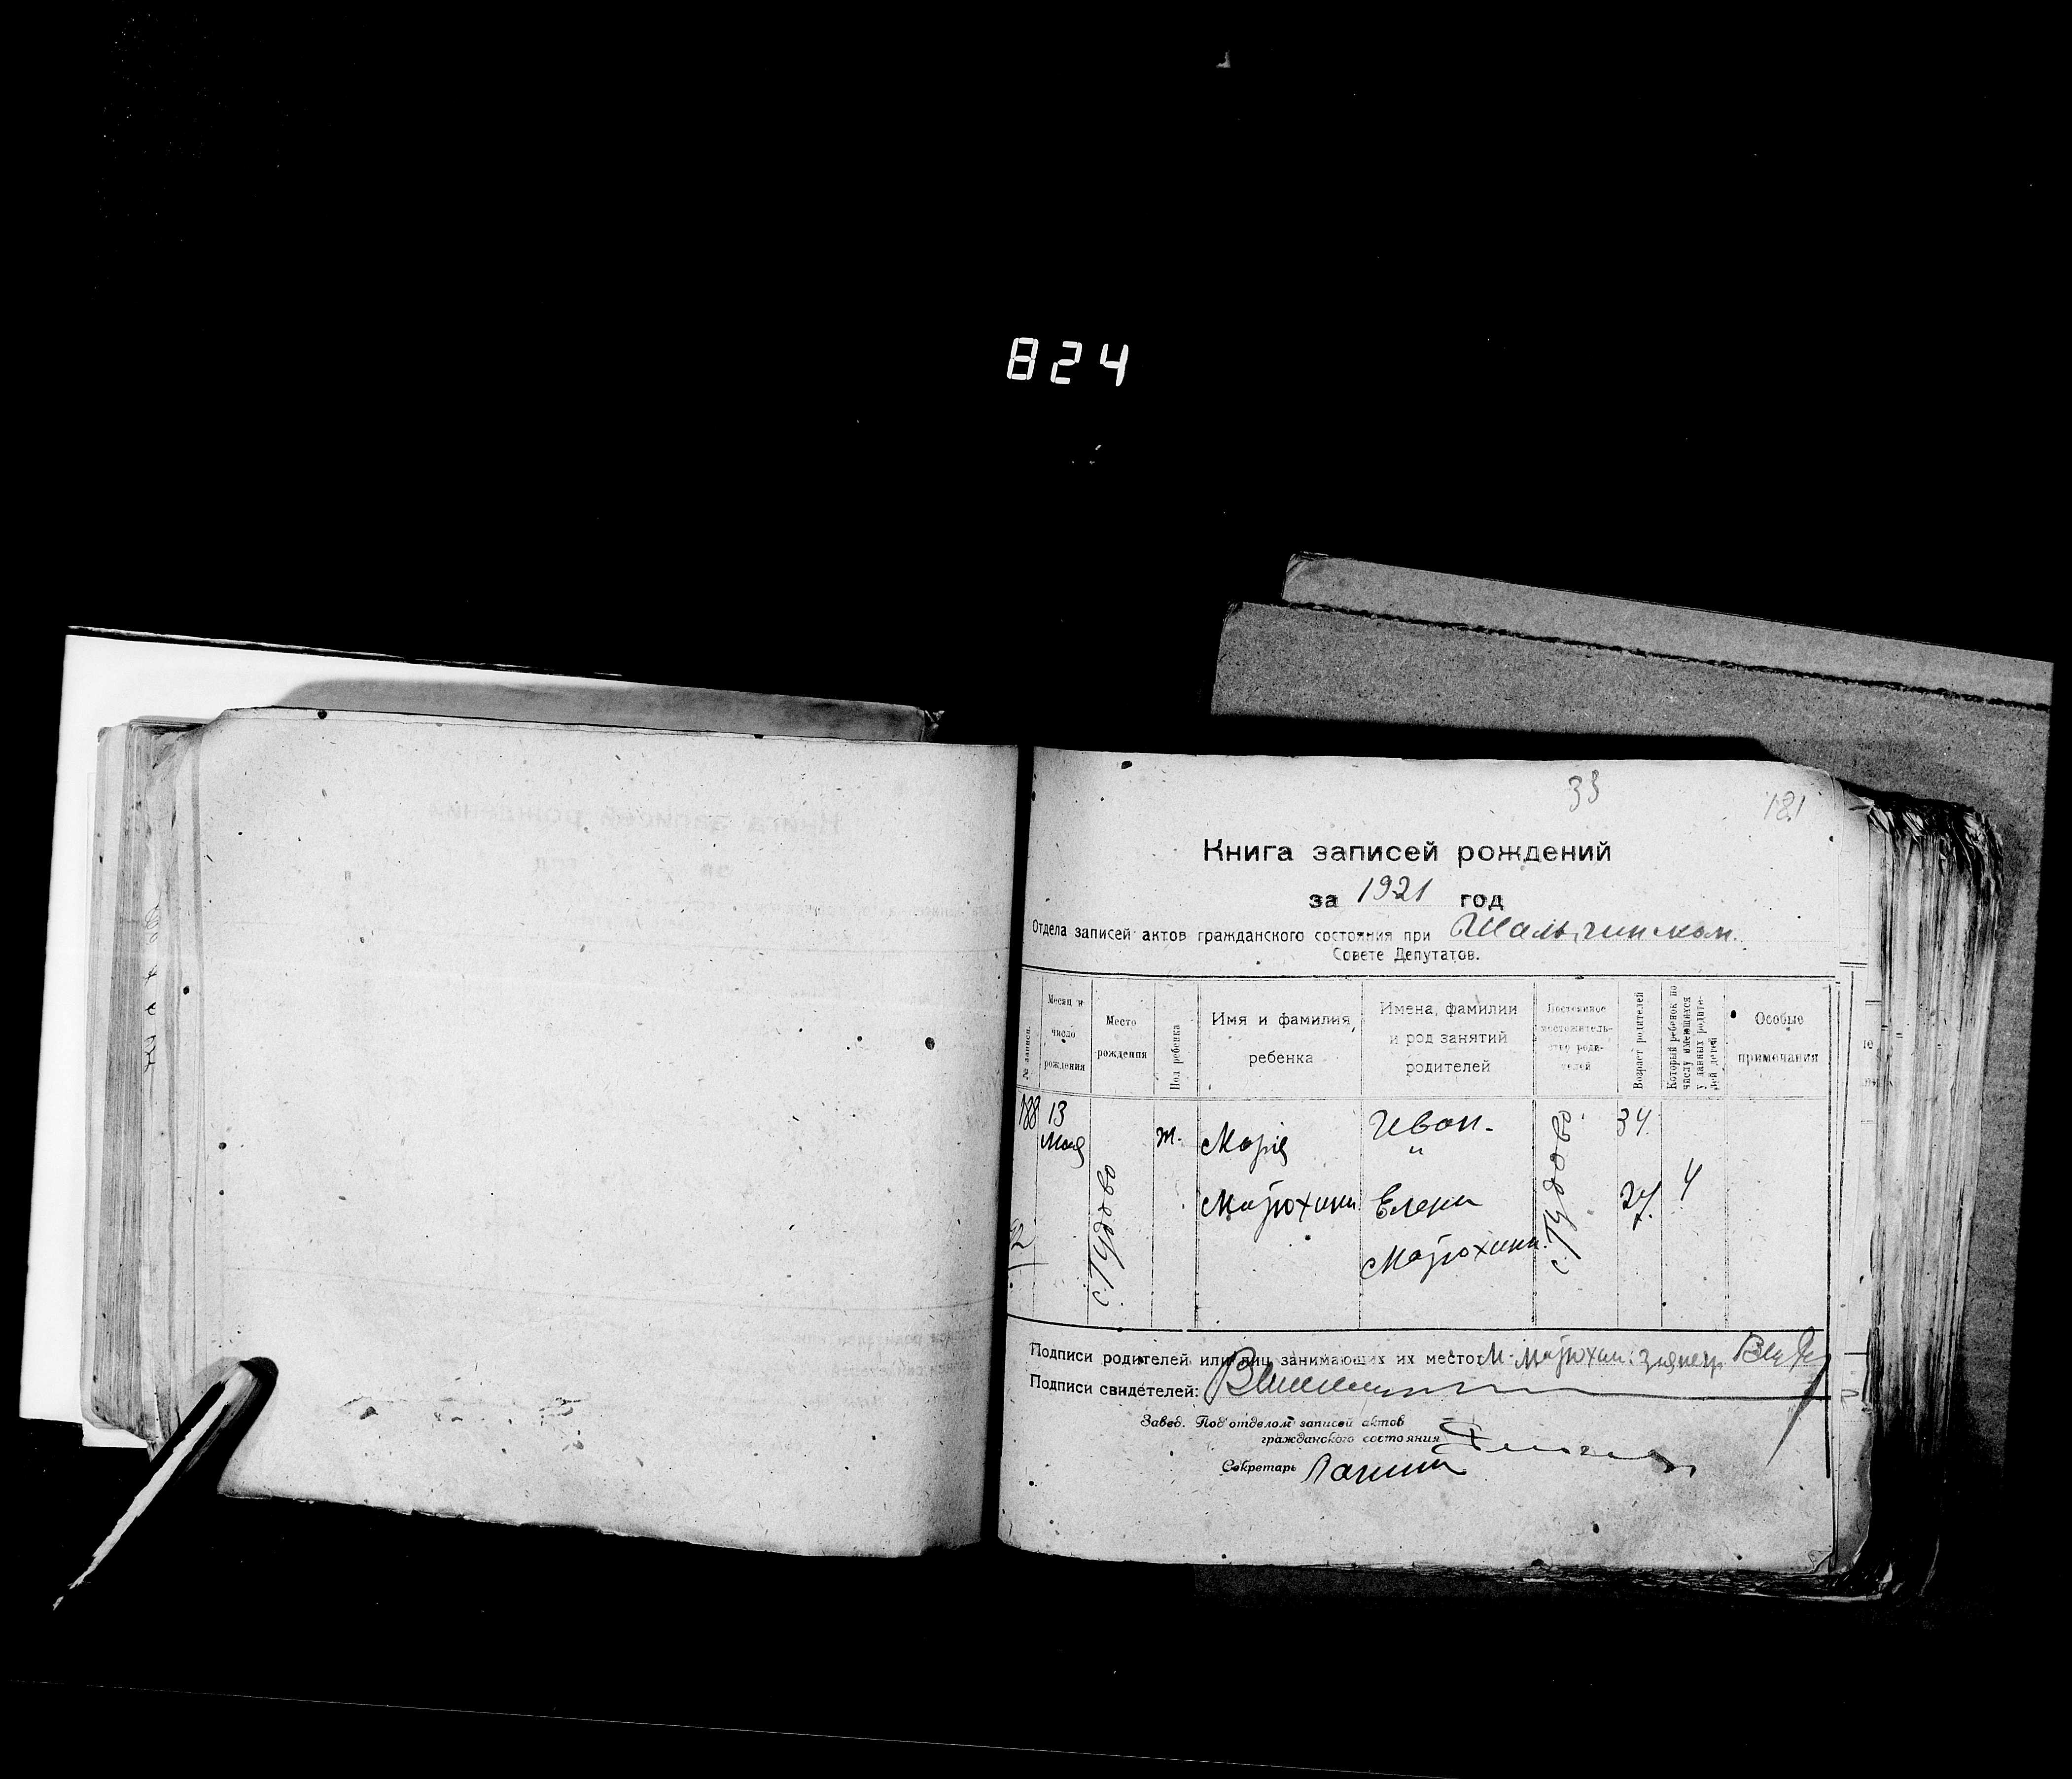 824
33
181
Книга записей рождений
за 1921 год
Отдела записей актов гражданского состояния при
Совете Депутатов.
№ записи.
Месяц и число рождения
Место рождения
Пол ребенка
Имя и фамилия ребенка
Имена, фамилии и род занятий родителей
Постоянное местожительство родителей
Возраст родителей
Который ребенок по числу имеющихся у данных родителей детей
Особые примечания
188
13 Мая
с. Гудово
ж.
Марія
Матюхина
Иван -
"
Елена
Матюхины.
с. Гудово.
34
27
4
Подписи родителей или лиц занимающих их место: М. Матюхин:
Подписи свидетелей:
Завед. Под'отделом записей актов
гражданского состояния
Секретарь